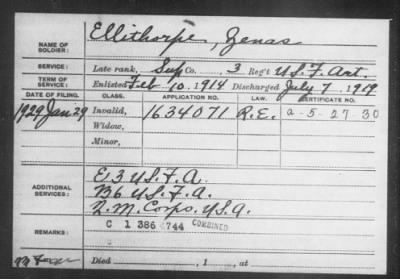 NAME OF SOLDIER: Ellithorpe, Zenas
SERVICE: Late rank, Sup Co. 3 Reg't U.S.F. Art.
TERM OF SERVICE: Enlisted Feb 10, 1914 Discharged July 7, 1919
DATE OF FILING. CLASS. APPLICATION NO. LAW. CERTIFICATE NO.
1929 Jan. 29 Invalid, 1634071 R.E. a-5-27 30
Widow,
Minor,
ADDITIONAL SERVICES: E 3 U.S.F.A.
B 6 U.S.F.A.
Q.M. Corps. U.S.A.
REMARKS: C 1 386 744 COMBINED
Died , 1 , at